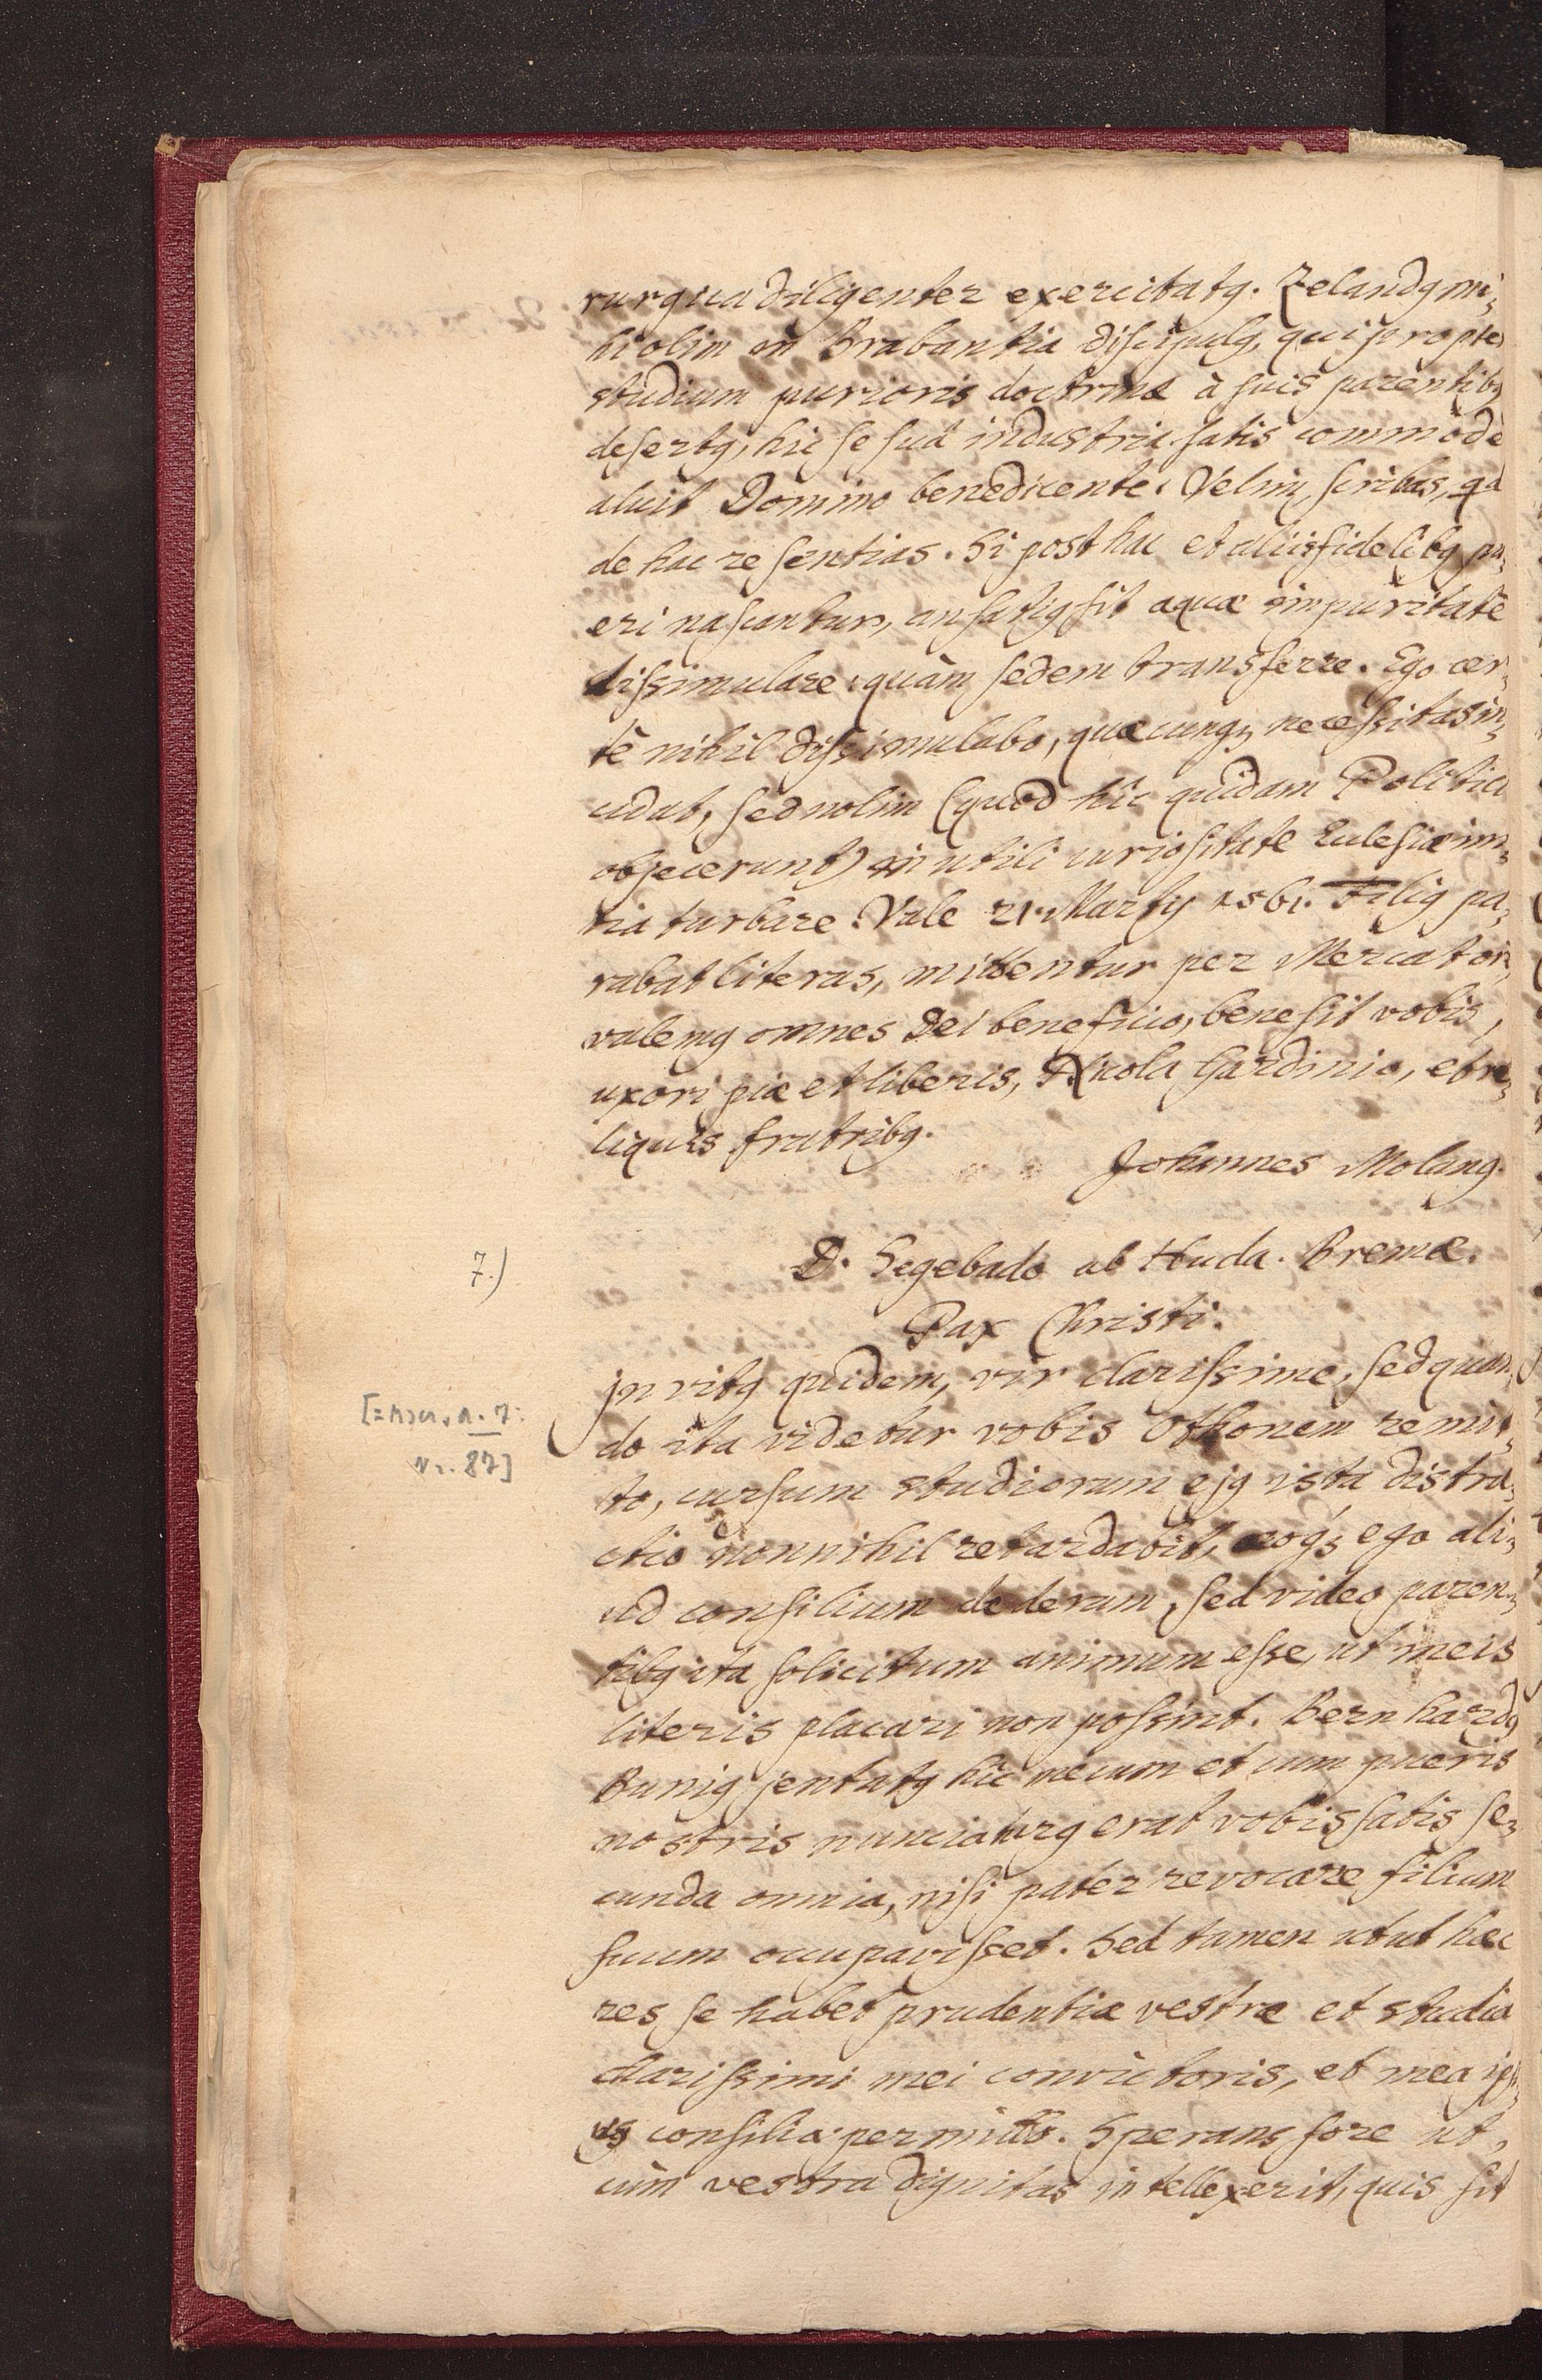 rurgica diligenter exercitatꝰ. Zelandꝰ mi¬
hi olim in Brabantia discipulꝰ, qui propter
studium purioris doctrinæ à suis parentibꝰ
desertꝰ, hic se suâ industria satis commodè
aluit Domino benedicente. Velim, scribas, qd
de hac re sentias. Si posthac et aliis fidelibꝰ pu¬
eri nascantur, an satiꝰ sit aquæ impuritatē
dissimulare, quàm sedem transferre. Ego cer¬
tè nihil dissimulabo, quæcunqꝫ necessitas in¬
cidat, sed nolim (quod hîc quidam Politici
objecerunt) inutili curiositate Ecclesiæ ini¬
tia turbare. Vale 21. Martij 1561. Filiꝰ pa¬
rabat literas, mittentur per Mercator,
valemꝰ omnes Dei beneficio, bene sit vobis,
uxori piæ et liberis, Nicola Gardinio, et re¬
liquis fratribꝰ.
Johannes Molanꝰ.
7.)
D. Segebado ab Huda. Bremæ.
Pax Christi.
Invitꝰ quidem, vir clarissime, sed quan¬
[= n. 7:
Nr. 87]
do ita videtur vobis Othonem remit¬
to, cursum studiorum ejꝰ ista distra¬
ctio nonnihil retardabit, eoqꝫ ego ali¬
ud consilium dederam, sed video paren¬
tibꝰ ita solicitum animum esse, ut meis
literis placari non possint. Bernhardꝰ
Buniꝰ jentatꝰ hîc mecum et cum pueris
nostris nunciaturꝰ erat vobis satis se¬
cunda omnia, nisi pater revocare filium
suum occupavisset. Sed tamen utut hæc
res se habet prudentiæ vestræ et studia
clarissimi mei convictoris, et mea ips¬
iꝰ consilia permitto. Sperans fore ut,
cùm vestra dignitas intellexerit, quis sit